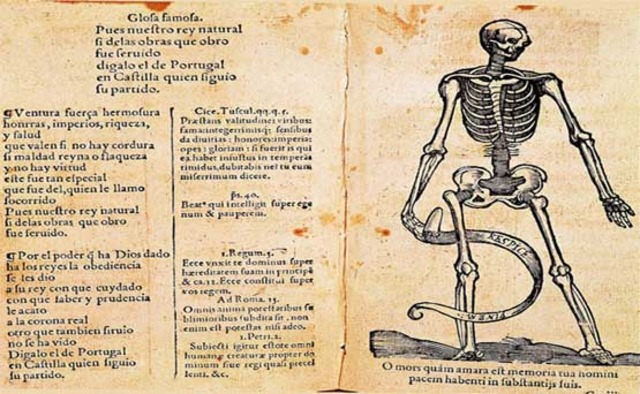 Glosa famosa.
Pues nuestro rey natural
si delas obras que obro
fue seruido
digalo el de Portugal
en Castilla quien siguio
su partido.
¶ Ventura fuerça hermosura
honrras, imperios, riqueza,
y salud
que valen si no hay cordura
si maldad reyna o flaqueza
y no hay virtud
este fue tan especial
que fue del, quien le llamo
socorrido
Pues nuestro rey natural
si delas obras que obro
fue seruido.
¶ Por el poder q̃ ha Dios dado
ha los reyes la obediencia
se les dio
a su rey con que cuydado
con que saber y prudencia
le acato
a la corona real
otro que tambien siruio
no se ha vido
Digalo el de Portugal
en Castilla quien siguio
su partido.
Cice. Tuscul. qq. q. 5.
Præstans valitudine: viribus:
fama: integerrimisq; sensibus
da diuitias: honores: imperia:
opes: gloriam: si fuerit is qui
ea habet iniustus in temperās
timidus, dubitabis ne tu eum
miserrimum dicere.
ps. 40.
Beatꝰ qui intelligit super ege
num & pauperem.
1. Regum. 5.
Ecce vnxit te dominus super
hæreditatem suam in principē
& ca. 12. Ecce constitui super
vos regem.
Ad Roma. 13.
Omnis anima potestatibus su
blimioribus subdita sit, non
enim est potestas nisi adeo.
1. Petri. 2.
Subiecti igitur estote omni
humanæ creaturæ propter do
minum siue regi quasi præcel
lenti. &c.
RESPICE
O mors quám amara est memoria tua homini
pacem habenti in substantijs suis.